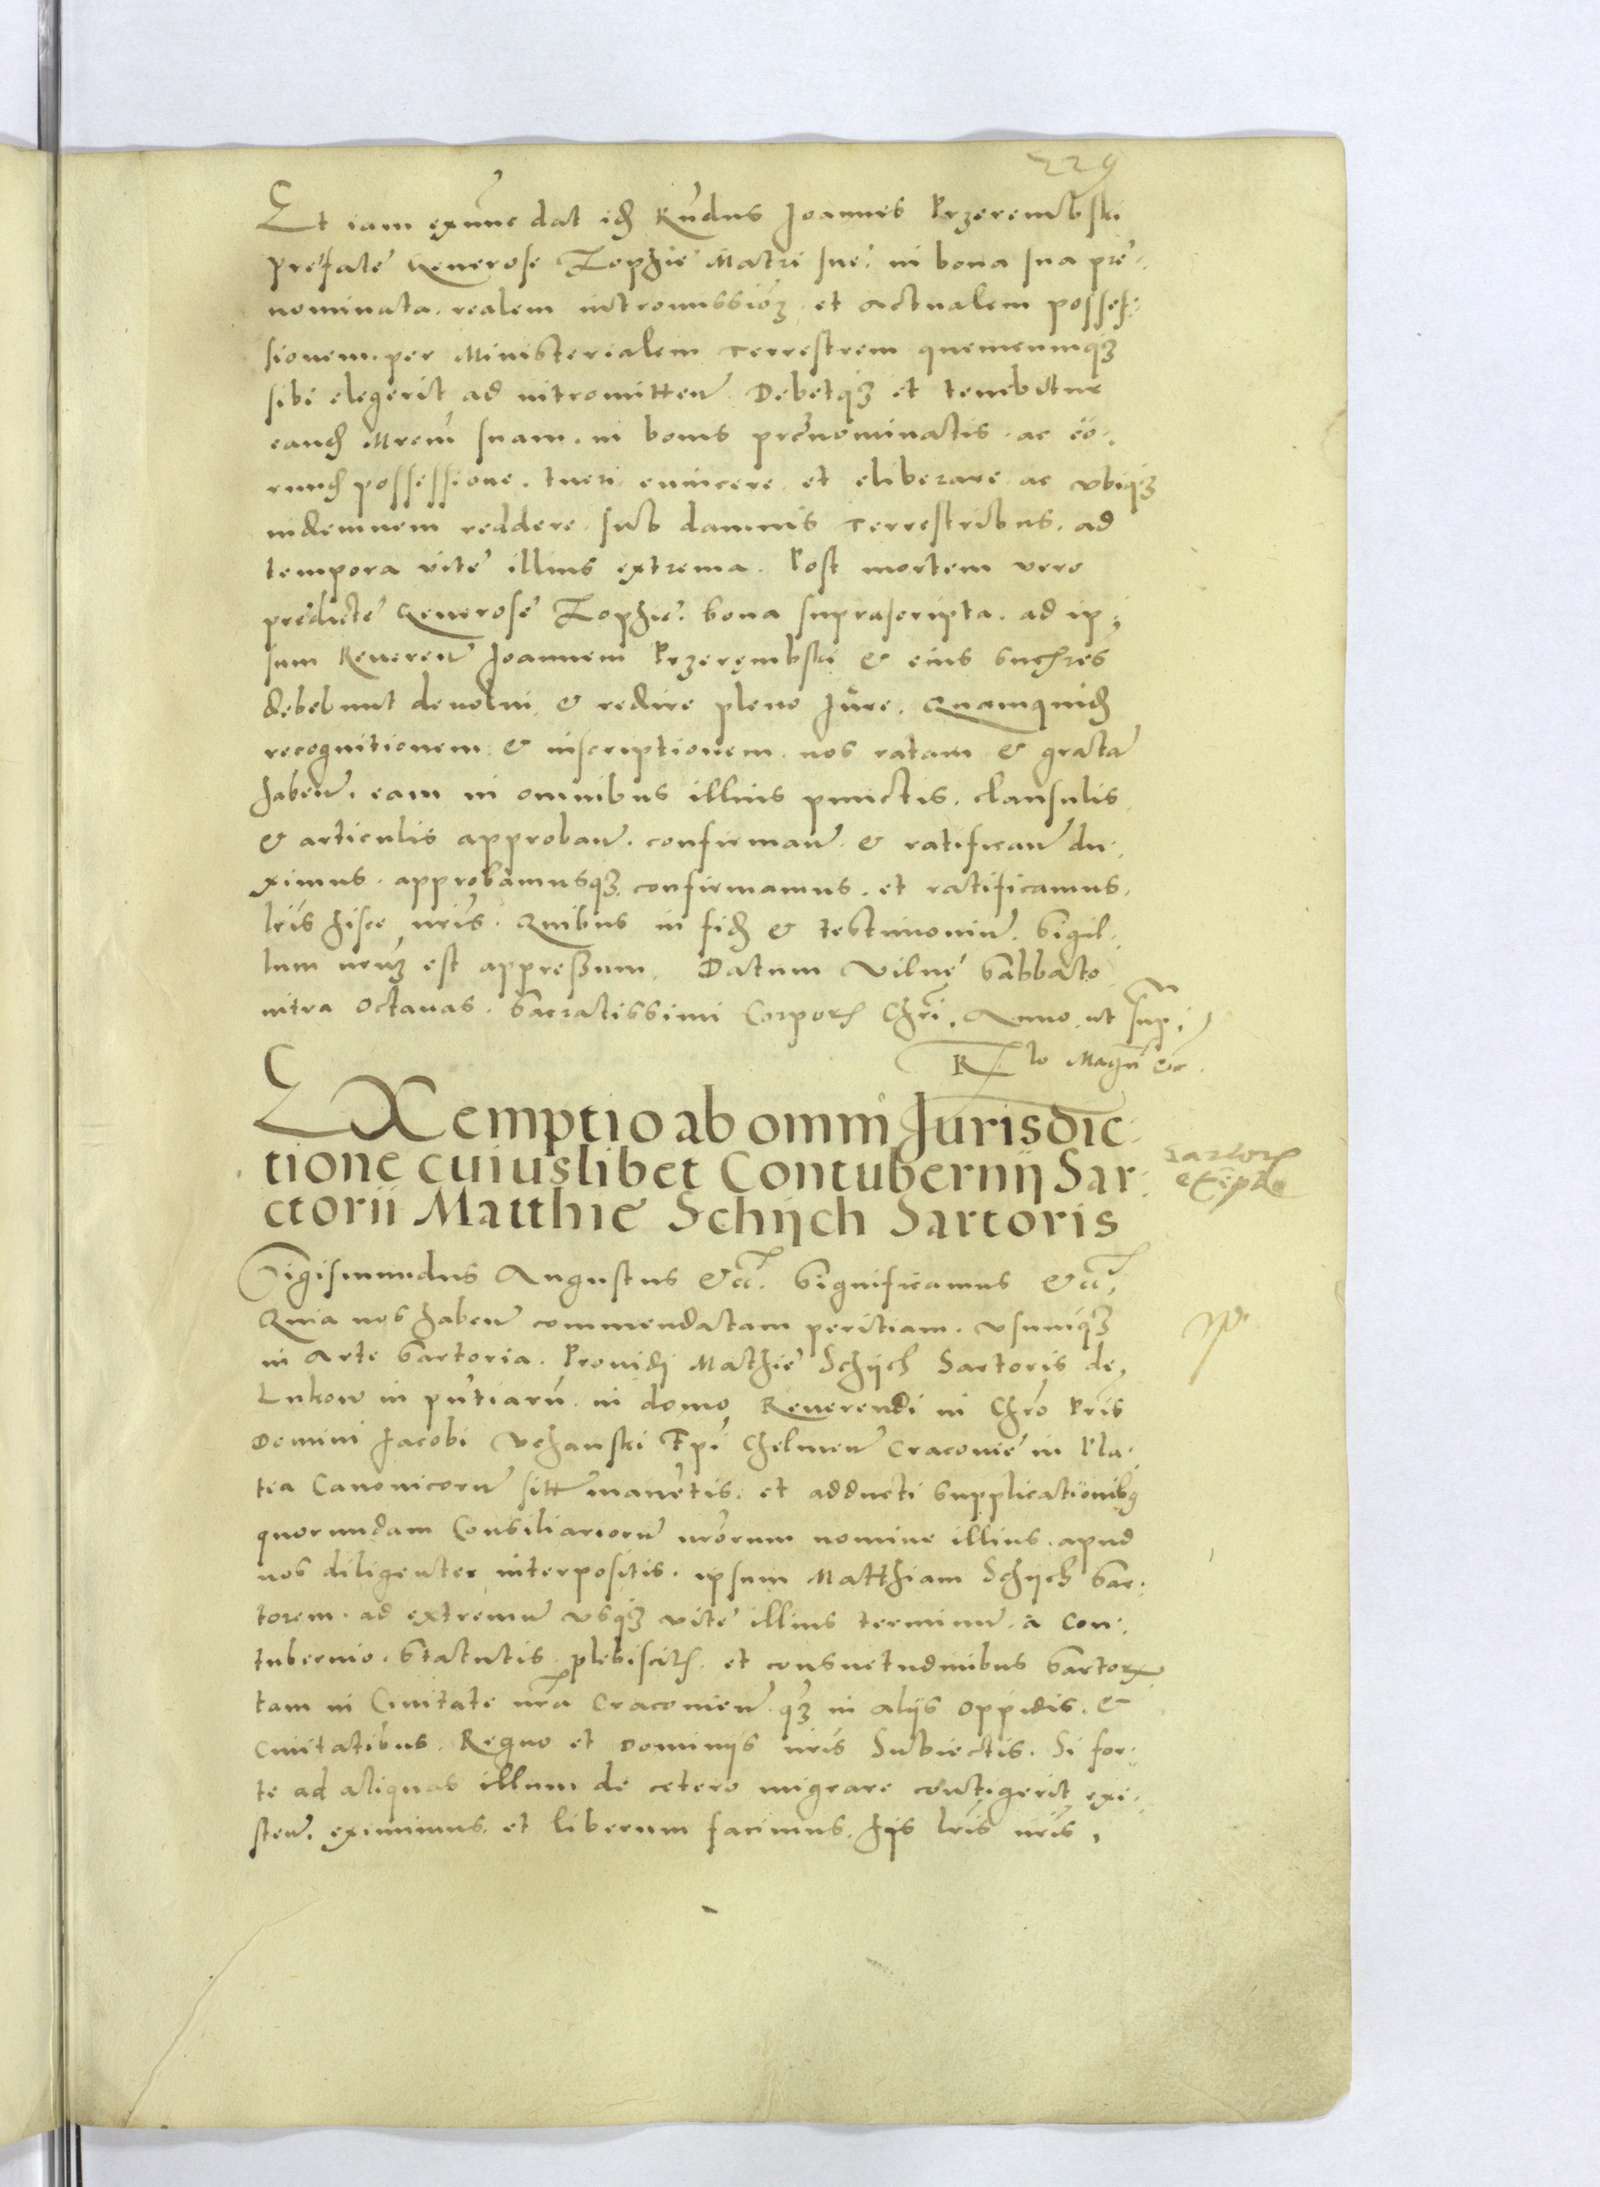 229
Et iam exnunc dat idē Rndus Joannes Przerembski
prefate Generose Zophie Matri sue, in bona sua pre-
nominata, realem intromissioē, et actualem posses-
sionem, per Ministerialem Terrestrem quemcunqȝ
sibi elegerit ad intromitteñ. Debetqȝ et tenebitur
eandē Mrem suam, in bonis prenominatis, ac eo-
rundē possessione, tueri, euincere, et eliberare, ac vbiqȝ
indemnem reddere, sub damnis Terrestribus, ad
tempora vite illius extrema. Post mortem vero
predicte Generose Zophie, bona suprascripta, ad ip-
sum Reuereñ Joannem Przerembski & eius succēres
debebunt deuolui, & redire pleno Jure. Quamquidē
recognitionem & inscriptionem, nos ratam & gratā
habeñ, eam in omnibus illius punctis, clausulis
& articulis approbañ, confirmañ & ratificañ du-
ximus, approbamusqȝ, confirmamus, et ratificamus,
lris hisce nris. Quibus in fidē & testimoniū, Sigil-
lum nrum est appressum. Datum Vilne Sabbato
intra Octauas, Sacratissimi Corporis Chri, Anno ut sup:
Rlo Magñ &c
EXemptio ab omni Jurisdic-
tione cuiuslibet Contubernij Sar-
ctorii Matthie Schijch Sartoris
Sartoris
exēptio
Sigismundus Augustus &c. Significamus &c,
Quia nos habeñ commendatam peritiam, vsumqȝ
in Arte Sartoria, Prouidi Mathie Schijch Sartoris de
Lukow in pñtiarū in domo Reuerendi in Chro Pris
Domini Jacobi Vchanski Epi Chelmeñ Cracouie in Pla-
tea Canonicorū sitt̄ manētis, et adducti supplicationibȝ
quorundam Consiliariorū nrorum nomine illius, apud
nos diligenter interpositis, ipsum Matthiam Schijch Sar-
torem, ad extremū vsqȝ vite illius terminū, a Con-
tubernio, Statutis, plebiscitis, et consuetudinibus Sartorꝝ
tam in Ciuitate nra Cracouieñ qȝ in alijs Oppidis, &
Ciuitatibus, Regno et Dominijs nris Subiectis, Si for-
te ad aliquas illum de cetero migrare contigerit, exi-
steñ, eximimus, et liberum facimus, hijs lris nris,